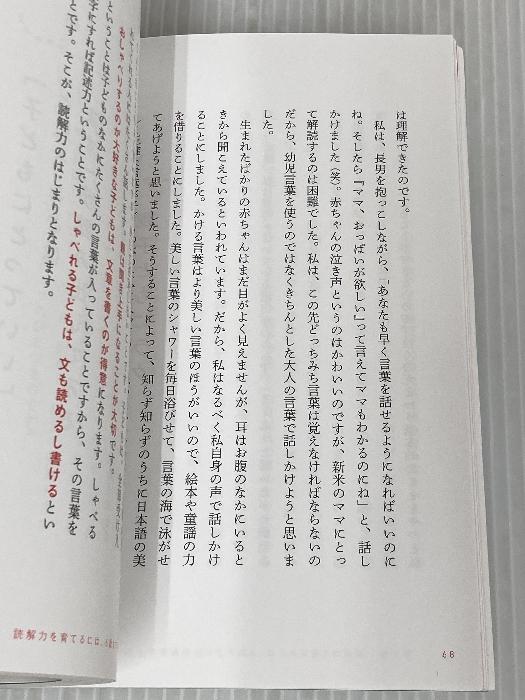 は理解できたのです。
私は、長男を抱っこしながら、「あなたも早く言葉を話せるようになればいいのに
ね。そしたら『ママ、おっぱいが欲しい』って言えてママもわかるのにね」と、話し
かけました（笑）。赤ちゃんの泣き声というのはかわいいのですが、新米のママにとっ
て解読するのは困難でした。私は、この先どっちみち言葉は覚えなければならないの
だから、幼児言葉を使うのではなくきちんとした大人の言葉で話しかけようと思いま
した。
生まれたばかりの赤ちゃんはまだ目がよく見えませんが、耳はお腹のなかにいると
きから聞こえているといわれています。だから、私はなるべく私自身の声で話しかけ
ることにしました。かける言葉はより美しい言葉のほうがいいので、絵本や童謡の力
を借りることにしました。美しい言葉のシャワーを毎日浴びせて、言葉の海で泳がせ
てあげようと思いました。そうすることによって、知らず知らずのうちに日本語の美
68
親は聞き上手になることが大切です。
おしゃべりするのが大好きな子どもは、文章を書くのが得意になります。しゃべる
ということは子どものなかにたくさんの言葉が入っていることですから、その言葉を
字にすれば記述力ということです。しゃべれる子どもは、文も読めるし書けるとい
とです。そこが、読解力のはじまりとなります。
読解力を育てるには、